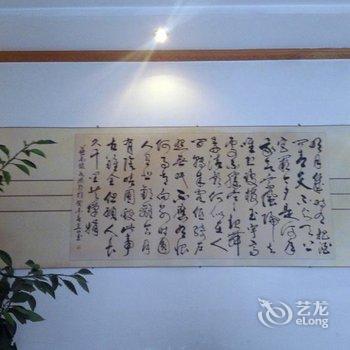 明月几时有把酒
问青天不知天上
宫阙今夕是何年
我欲乘风归去
又恐琼楼玉宇高
处不胜寒起舞
弄清影何似在人
间转朱阁低绮户
照无眠不应有恨
何事长向别时圆
人有悲欢离合月
有阴晴圆缺此事
古难全但愿人长
久千里共婵娟
艺龙
eLong